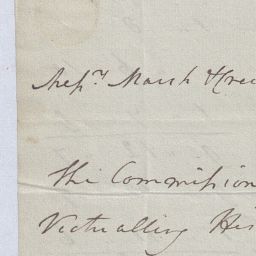 Messrs Marsh & Cree
The Commission
Victualling His